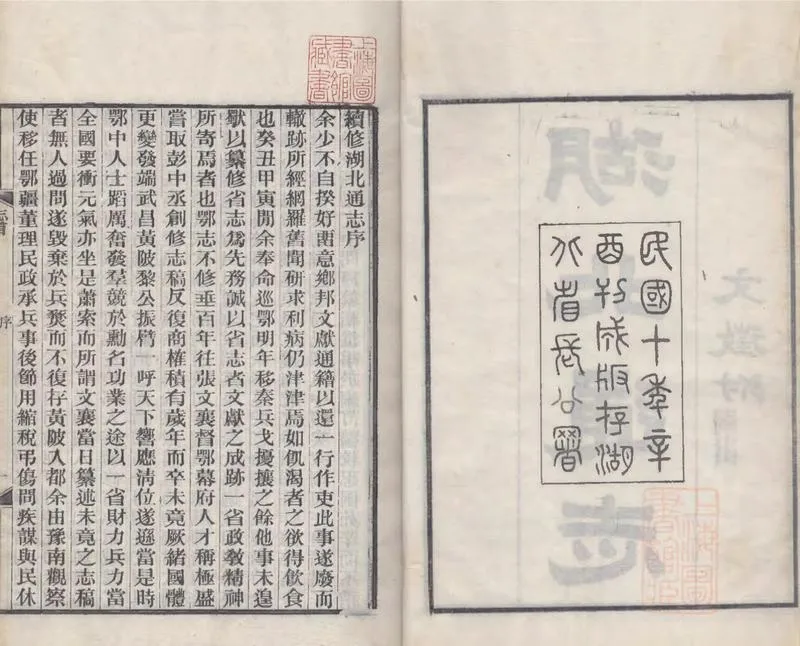 民國十年辛
酉刊成版存湖
北省長公署
上海圖
書館
藏書
續修湖北通志序
余少不自揆好畱意鄉邦文獻通籍以還一行作吏此事遂廢而
轍跡所經網羅舊聞研求利病仍津津焉如飢渴者之欲得飲食
也癸丑甲寅閒余奉命巡鄂明年移秦兵戈擾攘之餘他事未遑
歟以纂修省志爲先務誠以省志者文獻之成跡一省政敎精神
所寄焉者也鄂志不修垂百年往張文襄督鄂幕府人才稱極盛
嘗取彭中丞創修志稿反復商榷積有歲年而卒未竟厥緒國體
更變發端武昌黃陂黎公振臂一呼天下響應淸位遂遜當是時
鄂中人士蹈厲奮發羣競於勳名功業之途以一省財力兵力當
全國要衝元氣亦坐是蕭索而所謂文襄當日纂述未竟之志稿
者無人過問遂毀棄於兵燹而不復存黃陂入都余由豫南觀察
使移任鄂疆董理民政承兵事後節用縮稅弔傷問疾謀與民休
序
一